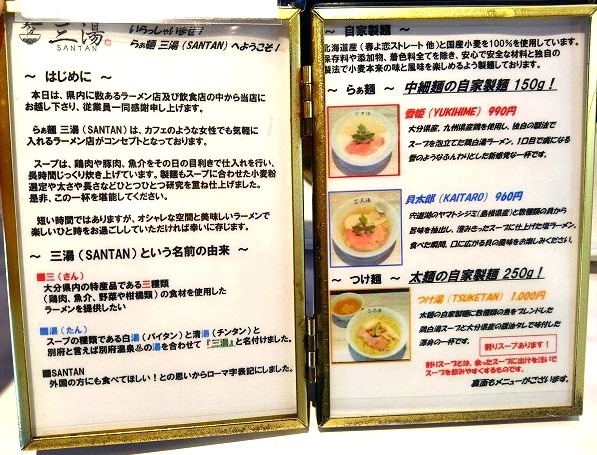 三湯
SANTAN
いらっしゃいませ!
らぁ麺 三湯(SANTAN)へようこそ!
~ はじめに ~
本日は、県内に数あるラーメン店及び飲食店の中から当店に
お越し下さり、従業員一同感謝申し上げます。
らぁ麺 三湯(SANTAN)は、カフェのような女性でも気軽に
入れるラーメン店がコンセプトとなっております。
スープは、鶏肉や豚肉、魚介をその日の目利きで仕入れを行い、
長時間じっくり炊き上げています。製麺もスープに合わせた小麦粉
選定や太さや長さなどひとつひとつ研究を重ね仕上げました。
是非、この一杯を堪能してください。
短い時間ではありますが、オシャレな空間と美味しいラーメンで
楽しいひと時をお過ごしていただければ幸いに存じます。
~ 三湯(SANTAN)という名前の由来 ~
■三(さん)
大分県内の特産品である三種類
(鶏肉、魚介、野菜や柑橘類)の食材を使用した
ラーメンを提供したい
■湯(たん)
スープの種類である白湯(パイタン)と清湯(チンタン)と
別府と言えば別府温泉♨の湯を合わせて『三湯』と名付けました。
■SANTAN
外国の方にも食べてほしい!との思いからローマ字表記にしました。
~ 自家製麺 ~
北海道産(春よ恋ストレート 他)と国産小麦を100%を使用しています。
保存料や添加物、着色料全てを除き、安心で安全な材料と独自の
製法で小麦本来の味と風味を楽しめるよう製麺しております。
~ らぁ麺 ~ 中細麺の自家製麺 150g!
雪姫(YUKIHIME) 990円
大分県産、九州県産鶏を使用し、独自の製法で
スープを泡立てた鶏白湯ラーメン、1口目で虜になる
雪のようなふんわりとした新感覚な一杯です。
貝太郎(KAITARO) 960円
宍道湖のヤマトシジミ(島根県産)と数種類の貝から
旨味を抽出し、澄みきったスープに仕上げた塩ラーメン。
食べた瞬間、口に広がる貝の風味をお楽しみください。
~ つけ麺 ~ 太麺の自家製麺 250g!
つけ湯(TSUKETAN) 1,000円
太麺の自家製麺に数種類の魚をブレンドした
鶏白湯スープと大分県産の醤油タレで味付した
渾身の一杯です。
割りスープあります!
割りスープとは、余ったスープに出汁を注いで
スープを飲みやすくするものです。
裏面もメニューがございます。